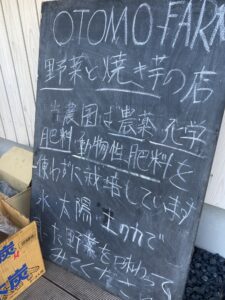 OTOMO FARM
野菜と焼き芋の店
当農園は農薬、化学
肥料、動物性肥料を
使わずに栽培しています
水、太陽、土の力で
った野菜を味わって
みてください
炭